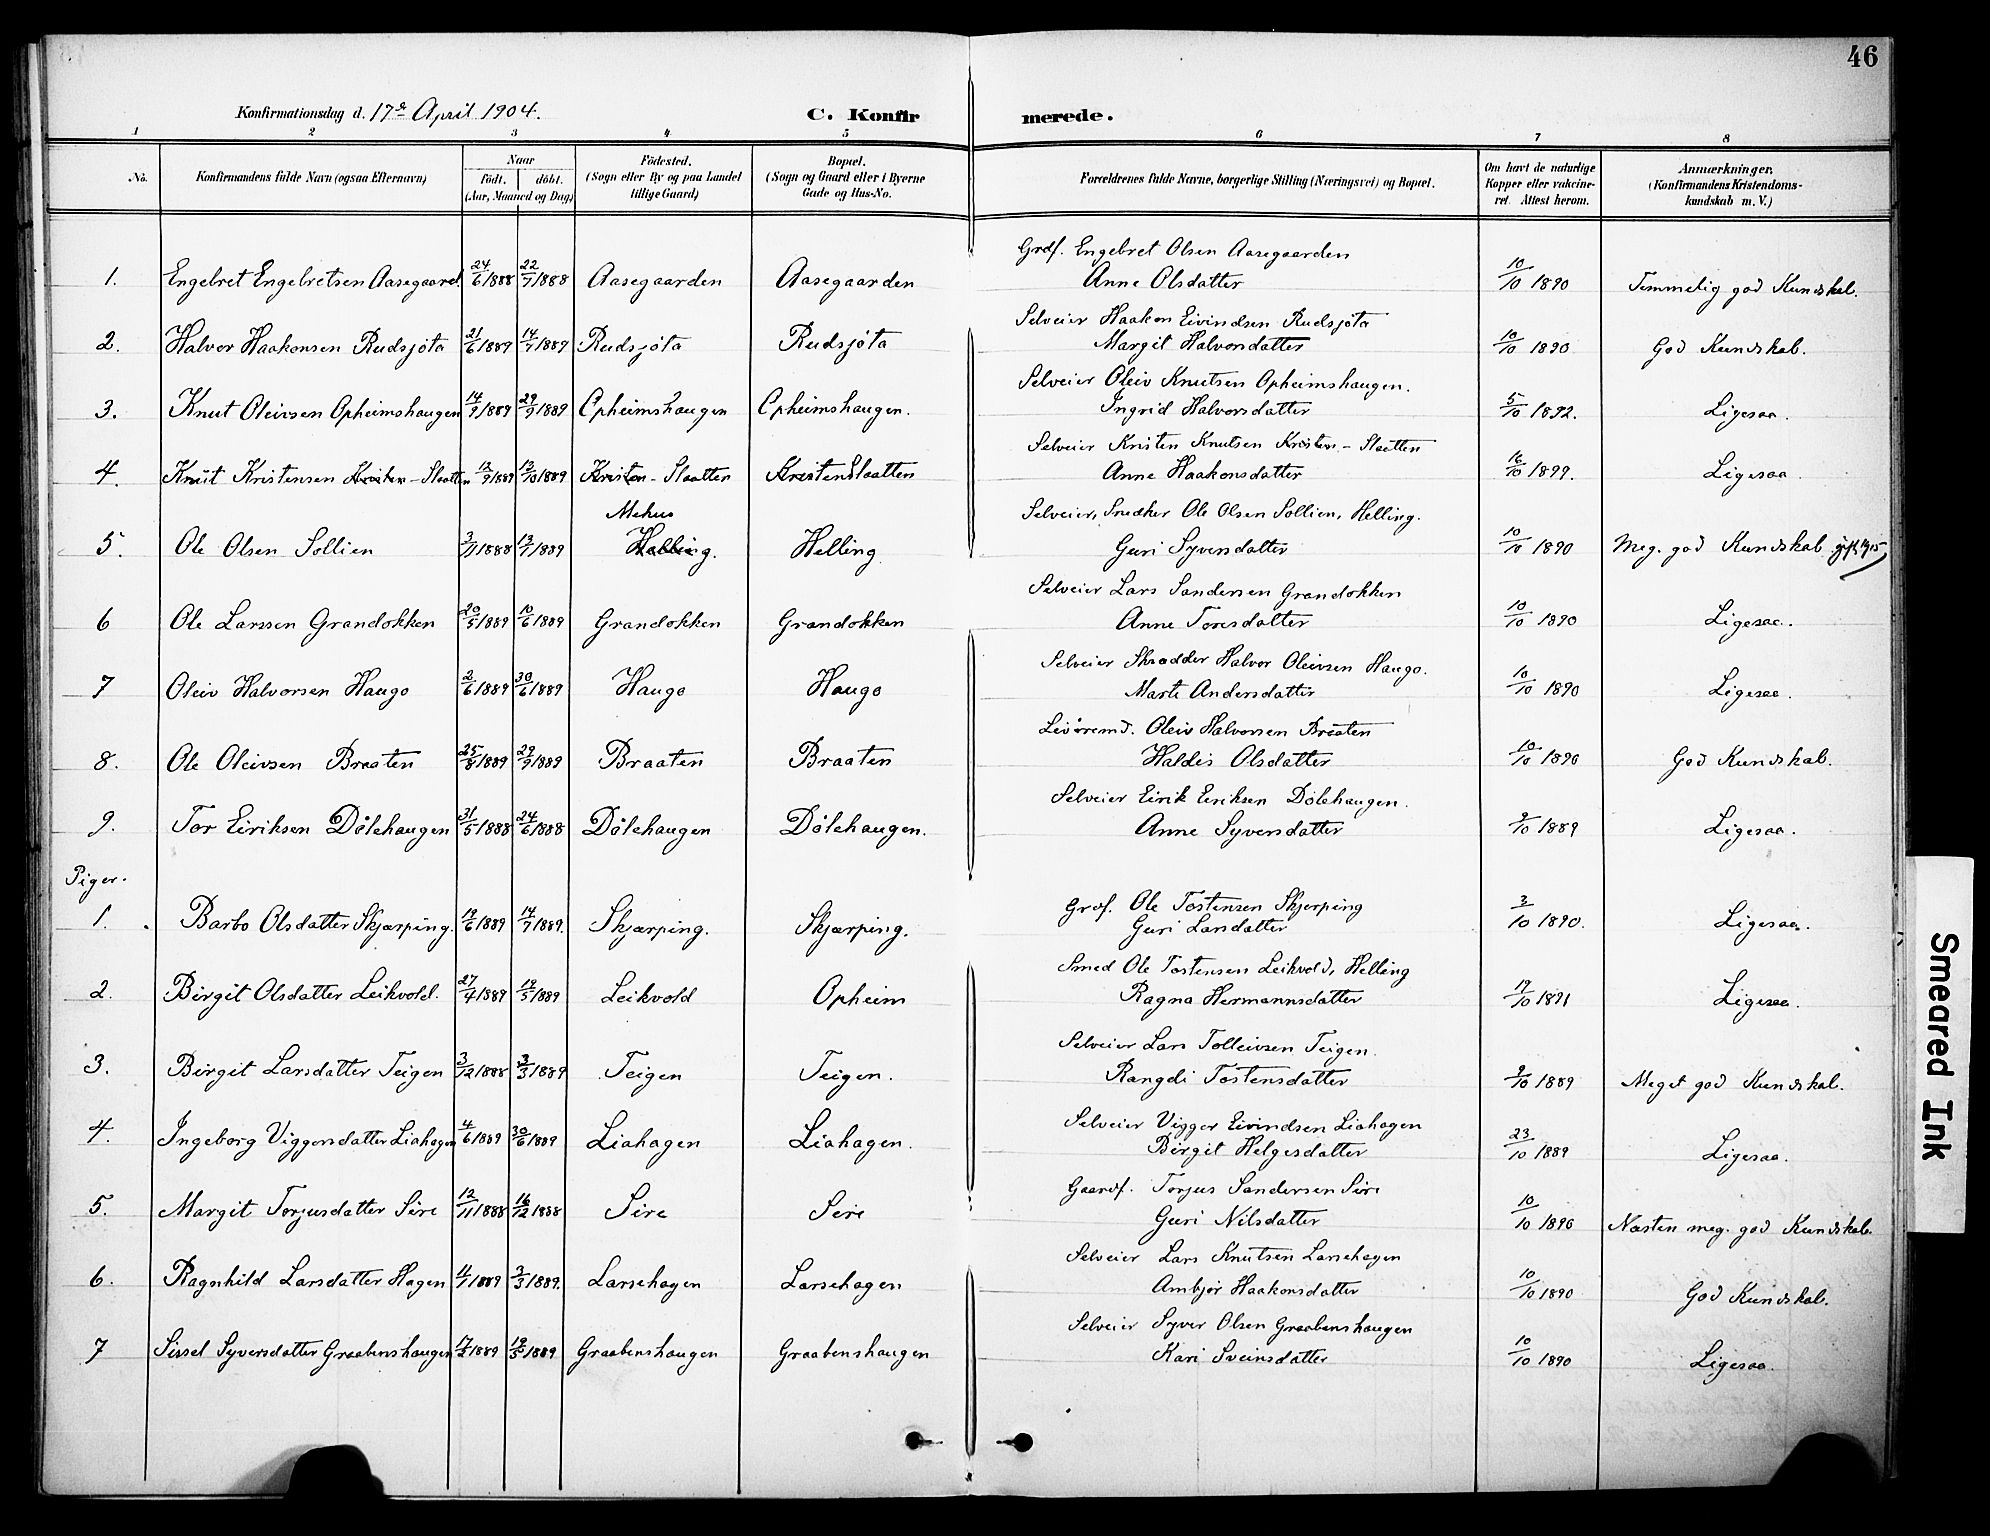 46
Konfirmationsdag d. 17de April 1904.
C. Konfir merede.
1 2 3 4 5 6 7 8
No.
Konfirmandens fulde Navn (ogsaa Efternavn)
Naar
Födt. döbt.
(Aar, Maaned og Dag)
Födested.
(Sogn eller By og paa Landet
tillige Gaard)
Bopæl.
(Sogn og Gaard eller i Byerne
Gade og Hus-No.
Forældrenes fulde Navne, borgerlige Stilling (Næringsvei) og Bopæl.
Om havt de naturlige
Kopper eller vakcine-
ret. Attest herom.
Anmærkninger.
(Konfirmandens Kristendoms-
kundskab m. V.)
Grdf. Engebret Olsen Aasegaarden
1. Engebret Engebretsen Aasegaard 24/6 1888 22/7 1888 Aasegaarden Aasegaarden Anne Olsdatter 10/10 1890 Temmelig god Kundskab.
Selveier Haakon Eivindsen Rudsjöta
2. Halvor Haakonsen Rudsjöta 21/6 1889 14/7 1889 Rudsjöta Rudsjöta Margit Halvorsdatter 10/10 1890 God Kundskab.
Selveier Oleiv Knutsen Opheimshaugen.
3. Knut Oleivsen Opheimshaugen 14/9 1889 29/9 1889 Opheimshaugen Opheimshaugen. Ingrid Halvorsdatter 5/10 1892. Ligesaa.
Selveier Kristen Knutsen Kristen-Slaatten
4. Knut Kristensen Kristen-Slaatten 12/9 1889 13/10 1889 Kristen-Slaatten KristenSlaatten Anne Haakonsdatter 16/10 1899. Ligesaa
Mehus
Selveier, Snedker Ole Olsen Sollien, Helling.
5. Ole Olsen Sollien 3/11 1888 13/1 1889 Helling. Helling Guri Syversdatter 10/10 1890 Meg. god Kundskab gift 1915
Selveier Lars Sandersen Grandokken
6 Ole Larssen Grandokken 20/5 1889 10/6 1889 Grandokken Grandokken Anne Toresdatter 10/10 1890 Ligesaa.
Selveier Skrædder Halvor Oleivsen Haugo.
7 Oleiv Halvorsen Haugo 2/6 1889 30/6 1889 Haugo Haugo Marte Andersdatter 10/10 1890 Ligesaa.
Oleiv Halvorsen Braaten
8. Ole Oleivsen Braaten 25/8 1889 29/9 1889 Braaten Braaten Haldis Olsdatter 10/10 1890 God Kundskab.
Selveier Eirik Eiriksen Dölehaugen.
9. Tor Eiriksen Dölehaugen 31/5 1888 24/6 1888 Dölehaugen Dölehaugen. Anne Syversdatter 9/10 1889 Ligesaa.
Piger.
Grdf. Ole Tostensen Skjerping
1. Barbo Olsdatter Skjærping. 19/6 1889 14/7 1889. Skjærping. Skjærping. Guri Larsdatter 3/10 1890. Ligesaa.
Smed Ole Tostensen Leikvold, Helling
2. Birgit Olsdatter Leikvold. 27/4 1889 19/5 1889 Leikvold Opheim Ragna Hermannsdatter 17/10 1891 Ligesaa.
Selveier Lars Tolleivsen Teigen.
3. Birgit Larsdatter Teigen 3/12 1888 3/3 1889 Teigen Teigen. Rangdi Tostensdatter 9/10 1889 Meget god Kundskab.
Selveier Vigger Eivindsen Liahagen
4. Ingeborg Viggersdatter Liahagen 4/6 1889 30/6 1889 Liahagen Liahagen. Birgit Helgesdatter 23/10 1889 Ligesaa.
Gaardf. Torjus Sandersen Sire
5. Margit Torjusdatter Sire 12/11 1888 16/12 1888 Sire Sire Guri Nilsdatter 10/10 1890 Næsten meg. god Kundskab.
Selveier Lars Knutsen Larsehagen
6. Ragnhild Larsdatter Hagen 4/1 1889 3/3 1889. Larsehagen Larsehagen Ambjör Haakonsdatter 10/10 1890 God Kundskab.
Selveier Syver Olsen Graabenshaugen
7 Sissel Syversdatter Graabenshaugen 17/2 1889 19/5 1889 Graabenshaugen Graabenshaugen Kari Sveinsdatter 10/10 1890 Ligesaa.
Smeared Ink